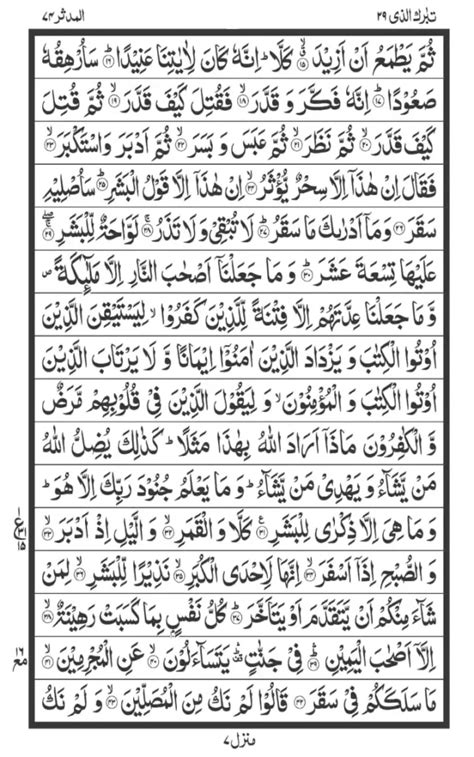 تبٰرك الذی ۲۹
المدثر ۷۴
ثُمَّ يَطْمَعُ اَنْ اَزِيْدَ ۙ‏﴿۱۵﴾ كَلَّا ؕ اِنَّهٗ كَانَ لِاٰيٰتِنَا عَنِيْدًا ؕ‏﴿۱۶﴾ سَاُرْهِقُهٗ
صَعُوْدًا ؕ‏﴿۱۷﴾ اِنَّهٗ فَكَّرَ وَ قَدَّرَ ۙ‏﴿۱۸﴾ فَقُتِلَ كَيْفَ قَدَّرَ ۙ‏﴿۱۹﴾ ثُمَّ قُتِلَ
كَيْفَ قَدَّرَ ۙ‏﴿۲۰﴾ ثُمَّ نَظَرَ ۙ‏﴿۲۱﴾ ثُمَّ عَبَسَ وَ بَسَرَ ۙ‏﴿۲۲﴾ ثُمَّ اَدْبَرَ وَاسْتَكْبَرَ ۙ‏﴿۲۳﴾
فَقَالَ اِنْ هٰذَاۤ اِلَّا سِحْرٌ يُّؤْثَرُ ۙ‏﴿۲۴﴾ اِنْ هٰذَاۤ اِلَّا قَوْلُ الْبَشَرِ ؕ‏﴿۲۵﴾ سَاُصْلِيْهِ
سَقَرَ ‏﴿۲۶﴾ وَمَاۤ اَدْرٰىكَ مَا سَقَرُ ؕ‏﴿۲۷﴾ لَا تُبْقِىْ وَلَا تَذَرُ ۚ‏﴿۲۸﴾ لَوَّاحَةٌ لِّلْبَشَرِ ۖۚ‏﴿۲۹﴾
عَلَيْهَا تِسْعَةَ عَشَرَ ؕ‏﴿۳۰﴾ وَ مَا جَعَلْنَاۤ اَصْحٰبَ النَّارِ اِلَّا مَلٰٓٮِٕكَةً ۪
وَّ مَا جَعَلْنَا عِدَّتَهُمْ اِلَّا فِتْنَةً لِّلَّذِيْنَ كَفَرُوْا ۙ لِيَسْتَيْقِنَ الَّذِيْنَ
اُوْتُوا الْكِتٰبَ وَ يَزْدَادَ الَّذِيْنَ اٰمَنُوْۤا اِيْمَانًا وَّ لَا يَرْتَابَ الَّذِيْنَ
اُوْتُوا الْكِتٰبَ وَ الْمُؤْمِنُوْنَ ۙ وَ لِيَقُوْلَ الَّذِيْنَ فِىْ قُلُوْبِهِمْ مَّرَضٌ
وَّ الْكٰفِرُوْنَ مَاذَاۤ اَرَادَ اللّٰهُ بِهٰذَا مَثَلًا ؕ كَذٰلِكَ يُضِلُّ اللّٰهُ
مَنْ يَّشَآءُ وَ يَهْدِىْ مَنْ يَّشَآءُ ؕ وَ مَا يَعْلَمُ جُنُوْدَ رَبِّكَ اِلَّا هُوَ ؕ
وَ مَا هِىَ اِلَّا ذِكْرٰى لِلْبَشَرِ ‏﴿۳۱﴾ كَلَّا وَ الْقَمَرِ ۙ‏﴿۳۲﴾ وَ الَّيْلِ اِذْ اَدْبَرَ ۙ‏﴿۳۳﴾
وَ الصُّبْحِ اِذَاۤ اَسْفَرَ ۙ‏﴿۳۴﴾ اِنَّهَا لَاِحْدَى الْكُبَرِ ۙ‏﴿۳۵﴾ نَذِيْرًا لِّلْبَشَرِ ۙ‏﴿۳۶﴾ لِمَنْ
شَآءَ مِنْكُمْ اَنْ يَّتَقَدَّمَ اَوْ يَتَاَخَّرَ ؕ‏﴿۳۷﴾ كُلُّ نَفْسٍۢ بِمَا كَسَبَتْ رَهِيْنَةٌ ۙ‏﴿۳۸﴾
اِلَّاۤ اَصْحٰبَ الْيَمِيْنِ ؕۛ‏﴿۳۹﴾ فِىْ جَنّٰتٍ ۛؕ يَتَسَآءَلُوْنَ ۙ‏﴿۴۰﴾ عَنِ الْمُجْرِمِيْنَ ۙ‏﴿۴۱﴾
مَا سَلَكَكُمْ فِىْ سَقَرَ ‏﴿۴۲﴾ قَالُوْا لَمْ نَكُ مِنَ الْمُصَلِّيْنَ ۙ‏﴿۴۳﴾ وَ لَمْ نَكُ
منزل ۷